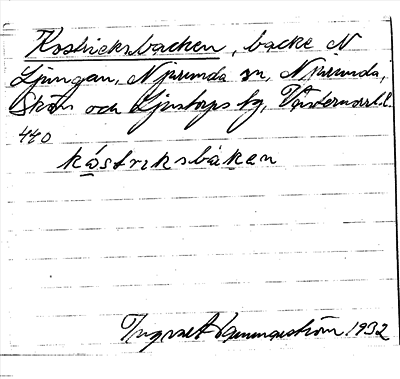 Kostriksbacken, backe N
Ljungan, Njurunda sn, Njurunda,
Sköns och Ljustorps tg, Västernorrl. l.
440
kåstriksbaken
Ingvalt Hammarström 1932